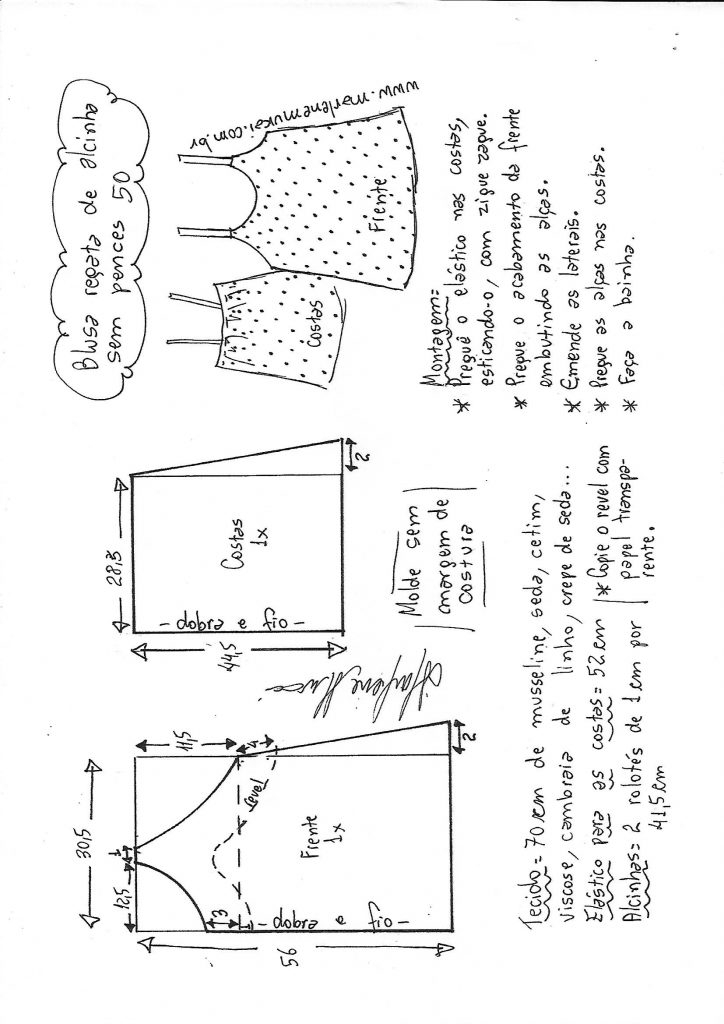 Blusa regata de alcinha
sem pences 50
www.marlenemukai.com.br
Costas
Frente
Montagem=
* Pregue o elástico nas costas,
esticando-o, com zigue zague.
* Pregue o acabamento da frente
embutindo as alças.
* Emende as laterais.
* Pregue as alças nas costas.
* Faça a bainha.
28,3
44,5
Costas
1x
- dobra e fio -
2
Molde sem
margem de
costura
30,5
12,5
1
11,5
4
3
revel
Frente
1x
- dobra e fio -
56
2
Tecido= 70cm de musseline, seda, cetim,
viscose, cambraia de linho, crepe de seda...
Elástico para as costas= 52cm
Alcinhas= 2 rolotés de 1cm por
41,5cm
* Copie o revel com
papel transpa-
rente.